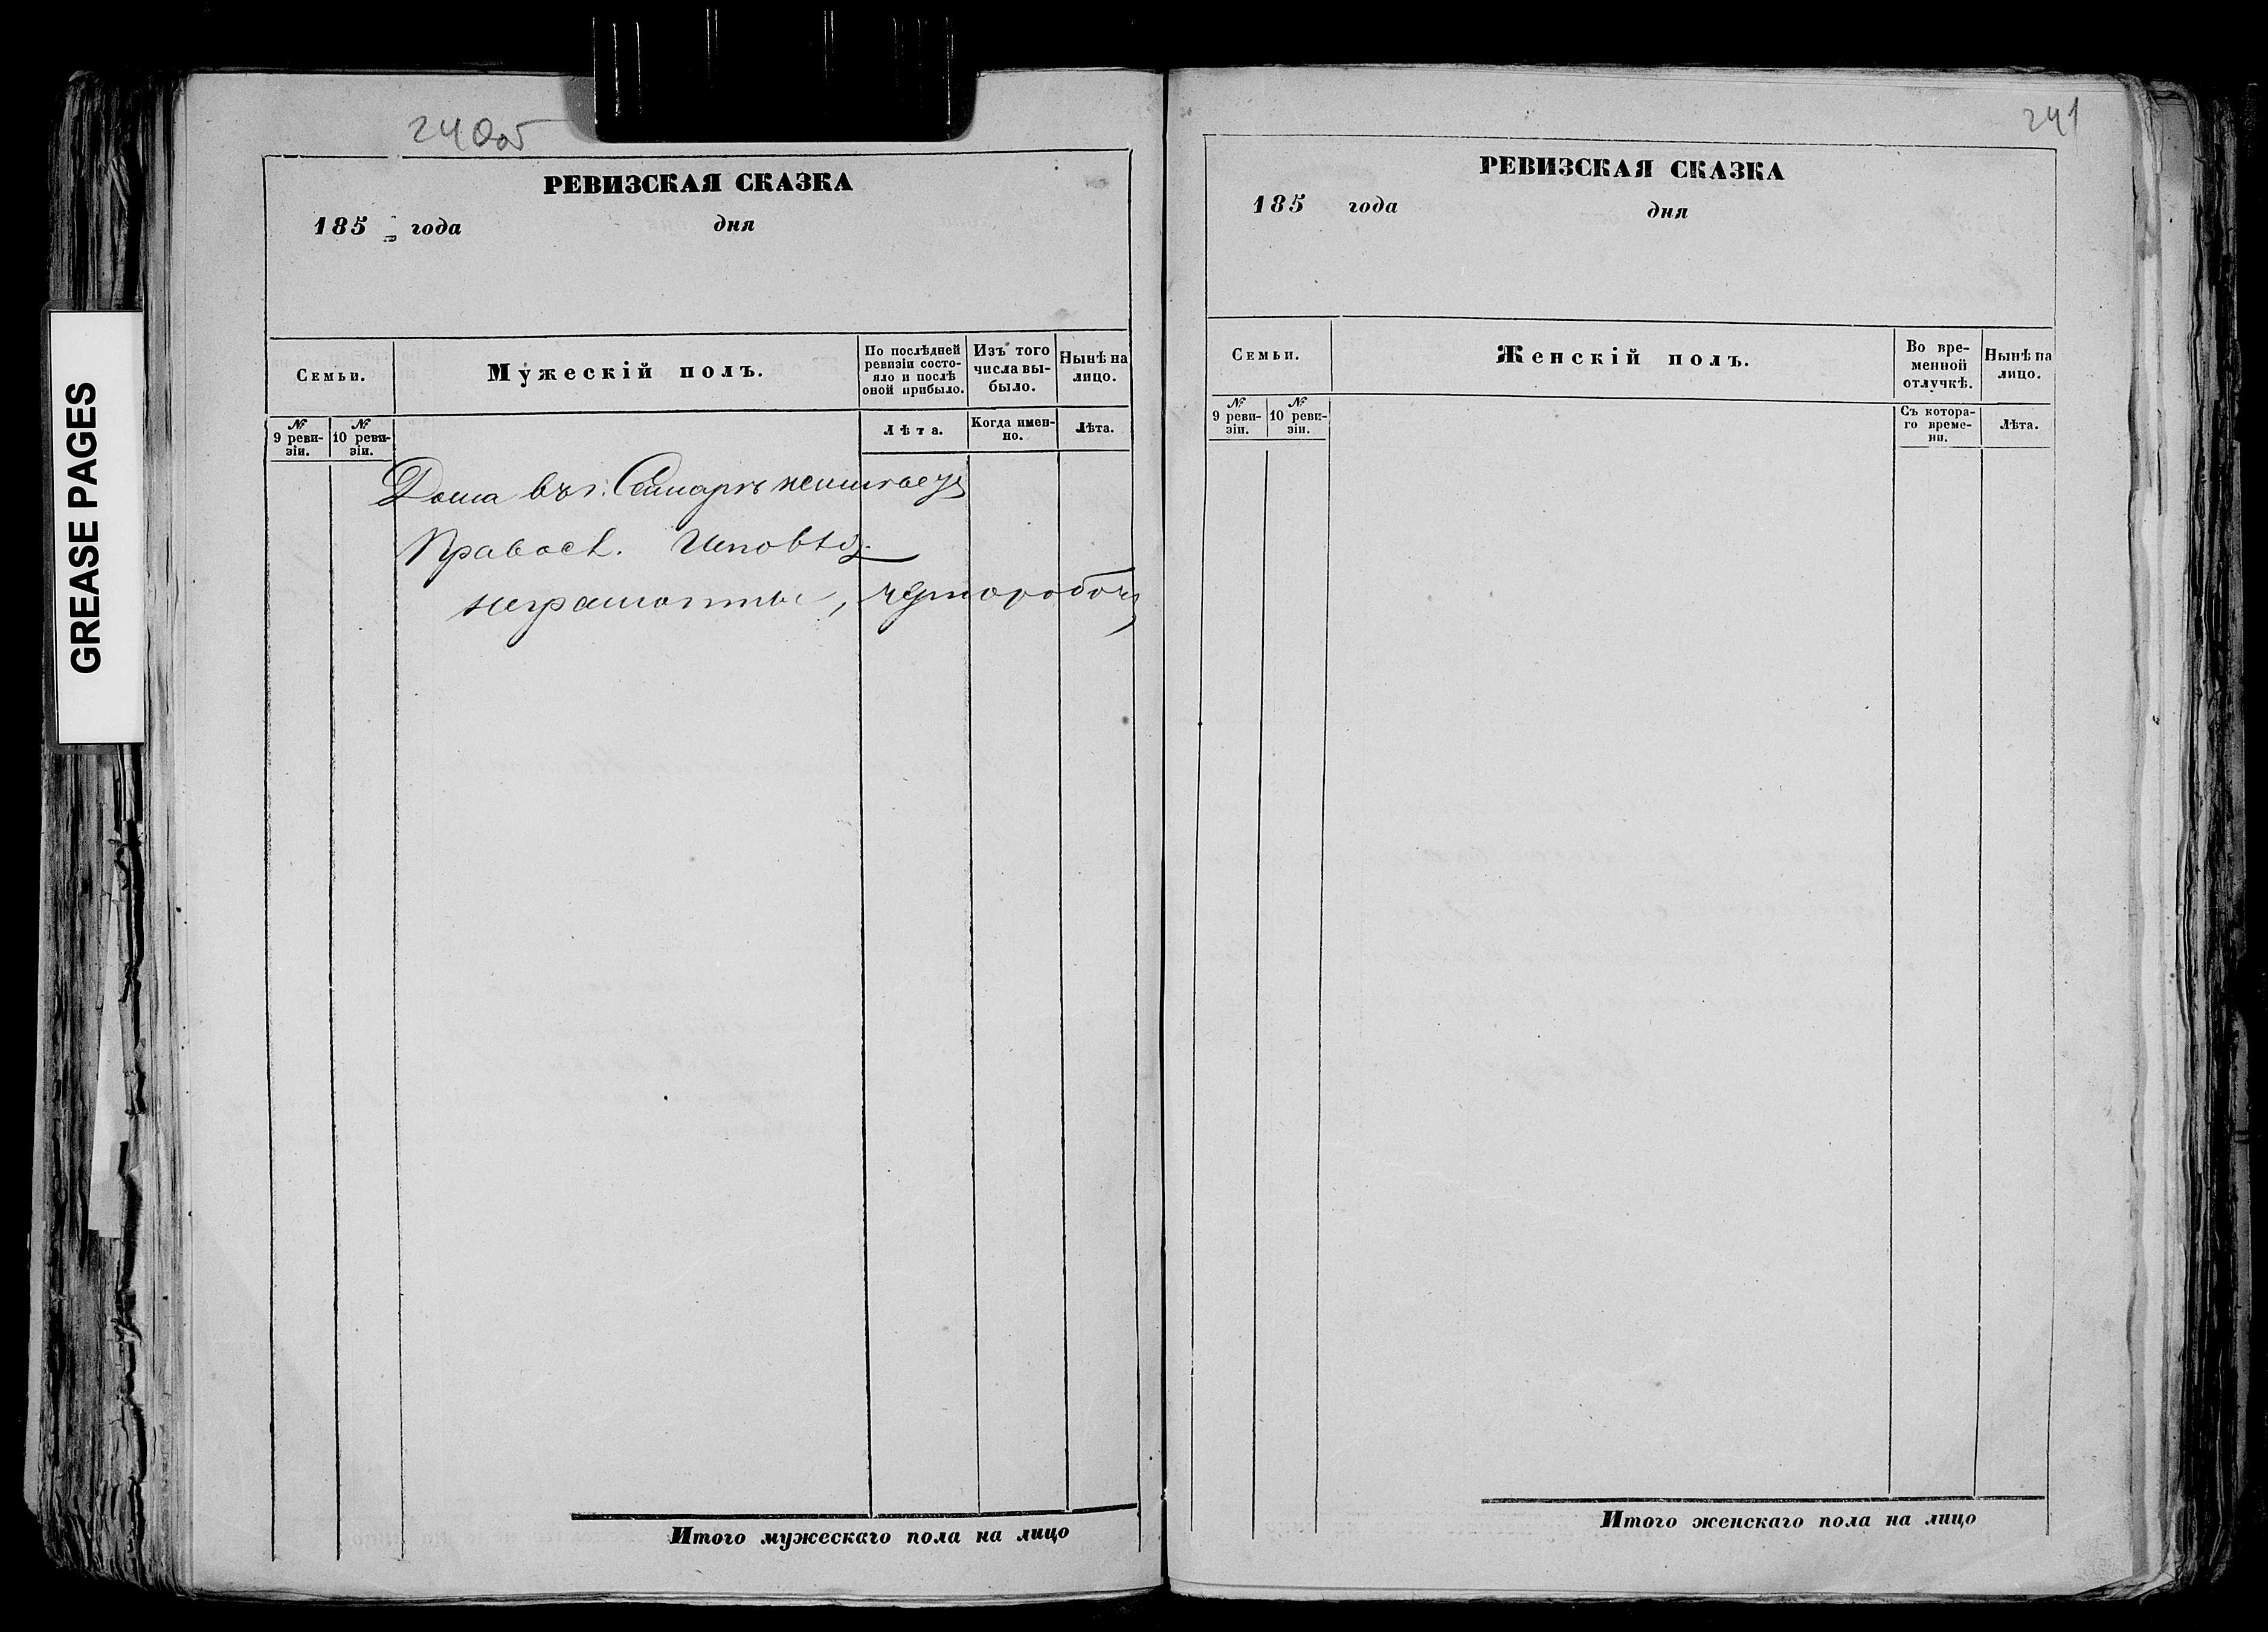 GREASE PAGES
240об
РЕВИЗСКАЯ СКАЗКА
185 года дня
Семьи.
Мужескій полъ.
По послѣдней ревизіи состояло и послѣ оной прибыло.
Изъ того числа выбыло.
Нынѣ на лицо.
№ 9 ревизіи.
№ 10 ревизіи.
Лѣта.
Когда именно.
Лѣта.
Дома въ г. Самарѣ неимѣе
Правосл. Исповѣд.
неграмотны, чернорабоч
Итого мужескаго пола на лицо
241
РЕВИЗСКАЯ СКАЗКА
185 года дня
Семьи.
Женскій полъ.
Во временной отлучкѣ.
Нынѣ на лицо.
№ 9 ревизіи.
№ 10 ревизіи.
Съ котораго времени.
Лѣта.
Итого женскаго пола на лицо